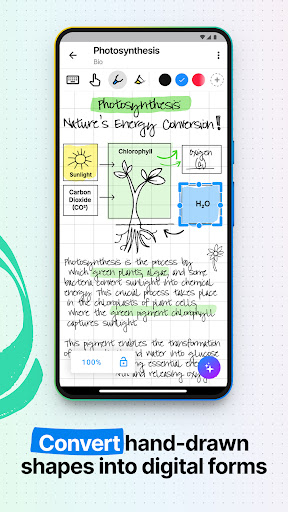 Photosynthesis
Bio
Photosynthesis
Nature's Energy Conversion!
Chlorophyll
Sunlight
Oxygen
Carbon
Dioxide
(CO²)
H₂O
Photosynthesis is the process by
which green plants, algae, and some
bacteria convert sunlight into chemical
energy. This crucial process takes place
in the chloroplasts of plant cells,
where the green pigment chlorophyll
captures sunlight.
This pigment enables the transformation
of and water into glucose
essential energy
and releasing oxyg
100%
Convert hand-drawn
shapes into digital forms